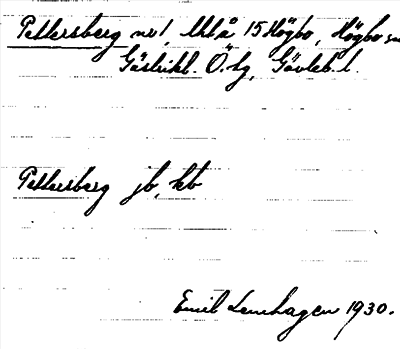 Pettersberg nr 1, Utl. å 15 Högbo, Högbo sn
Gästrikl. Ö. tg, Gävleb. l.
Pettersberg jb, kb
Emil Lenhagen 1930.